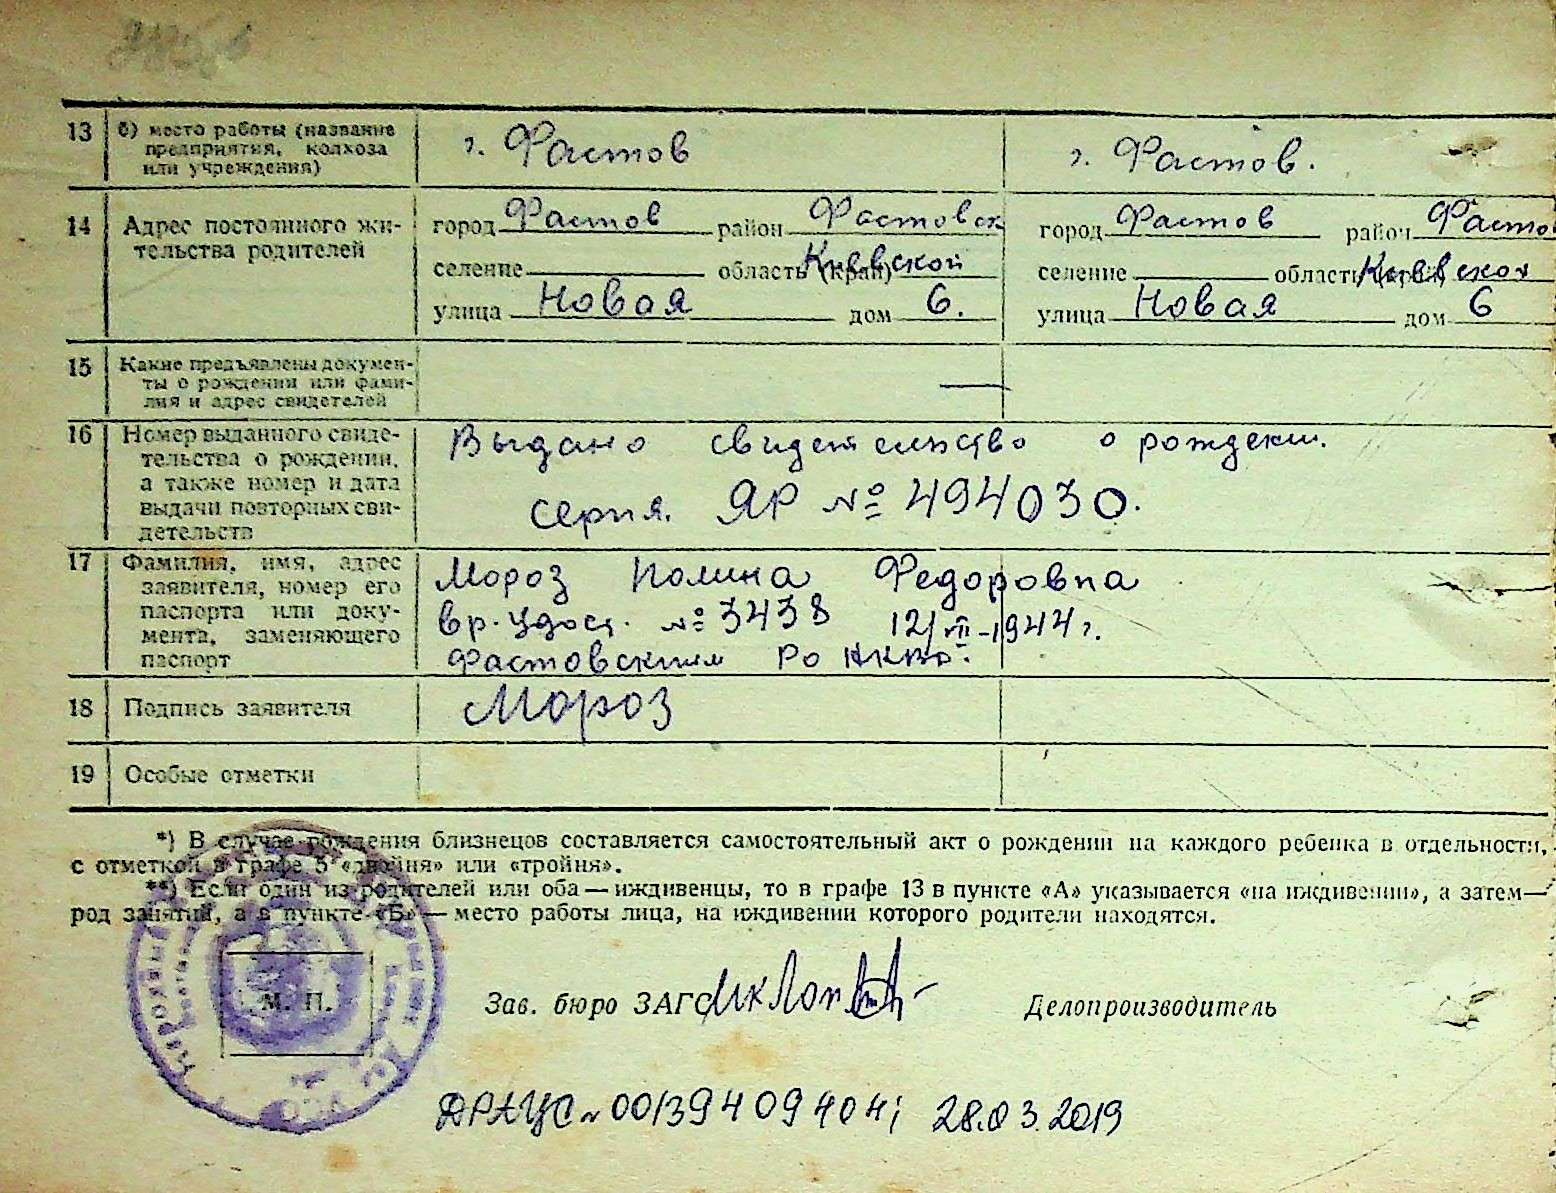 13 б) место работы (название г. Фастов г. Фастов.
предприятия, колхоза
или учреждения)
14 Адрес постоянного жи- город Фастов район Фастовск город Фастов район Фасто
тельства родителей селение область (край) Киевской селение область Киевской
улица Новая дом 6. улица Новая дом 6
15 Какие предъявлены докумен-
ты о рождении или фами-
лия и адрес свидетелей —
16 Номер выданного свиде- Выдано свидетельство о рождении.
тельства о рождении,
а также номер и дата серия. ЯР № 494030.
выдачи повторных сви-
детельств
17 Фамилия, имя, адрес Мороз Полина Федоровна
заявителя, номер его
паспорта или доку- вр. удост. № 3438 12/VII-1944 г.
мента, заменяющего
паспорт Фастовским РО НКВД.
18 Подпись заявителя Мороз
19 Особые отметки
*) В случае рождения близнецов составляется самостоятельный акт о рождении на каждого ребенка в отдельности,
с отметкой в графе 5 «двойня» или «тройня».
**) Если один из родителей или оба — иждивенцы, то в графе 13 в пункте «А» указывается «на иждивении», а затем —
род занятий, а в пункте «Б» — место работы лица, на иждивении которого родители находятся.
М. П. Зав. бюро ЗАГС Делопроизводитель
ДРАЦС № 00139409404; 28.03.2019